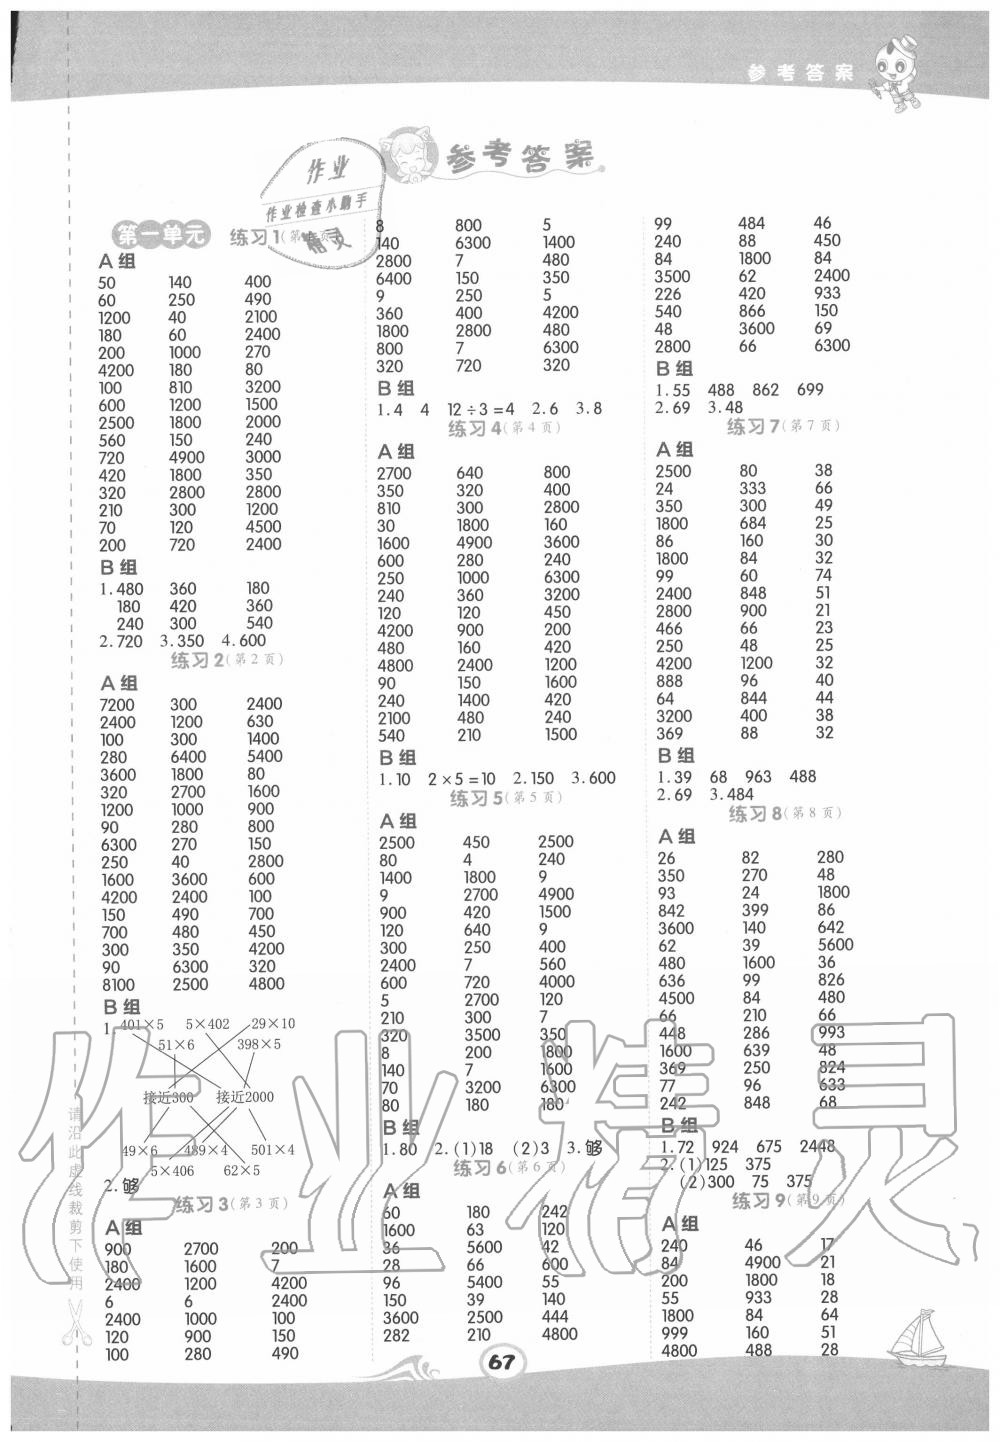 参考答案
参考答案
作业
作业检查小助手
精灵
第一单元 练习1(第1页)
A组
50 140 400
60 250 490
1200 40 2100
180 60 2400
200 1000 270
4200 180 80
100 810 3200
600 1200 1500
2500 1800 2000
560 150 240
720 4900 3000
420 1800 350
320 2800 2800
210 300 1200
70 120 4500
200 720 2400
B组
1.480 360 180
180 420 360
240 300 540
2.720 3.350 4.600
练习2(第2页)
A组
7200 300 2400
2400 1200 630
100 300 1400
280 6400 5400
3600 1800 80
320 2700 1600
1200 1000 900
90 280 800
6300 270 150
250 40 2800
1600 3600 600
4200 2400 100
150 490 700
700 480 450
300 350 4200
90 6300 320
8100 2500 4800
B组
1. 401×5 5×402 29×10
51×6 398×5
接近300 接近2000
49×6 489×4 501×4
5×406 62×5
2.够
练习3(第3页)
A组
900 2700 200
180 1600 7
2400 1200 4200
6 6 2400
2400 1000 100
120 900 150
100 280 490
8 800 5
140 6300 1400
2800 7 480
6400 150 350
9 250 5
360 400 4200
1800 2800 480
800 7 6300
320 720 320
B组
1.4 4 12÷3=4 2.6 3.8
练习4(第4页)
A组
2700 640 800
350 320 400
810 300 2800
30 1800 160
1600 4900 3600
600 280 240
250 1000 6300
240 360 3200
120 120 450
4200 900 200
480 160 420
4800 2400 1200
90 150 1600
240 1400 420
2100 480 240
540 210 1500
B组
1.10 2×5=10 2.150 3.600
练习5(第5页)
A组
2500 450 2500
80 4 240
1400 1800 9
9 2700 4900
900 420 1500
120 640 9
300 250 400
2400 7 560
600 720 4000
5 2700 120
210 300 7
320 3500 350
8 200 1800
140 7 1600
70 3200 6300
80 180 180
B组
1.80 2.(1)18 (2)3 3.够
练习6(第6页)
A组
60 180 242
1600 63 120
36 5600 42
28 66 600
96 5400 55
150 39 140
3600 2500 444
282 210 4800
99 484 46
240 88 450
84 1800 84
3500 62 2400
226 420 933
540 866 150
48 3600 69
2800 66 6300
B组
1.55 488 862 699
2.69 3.48
练习7(第7页)
A组
2500 80 38
24 333 66
350 300 49
1800 684 25
86 160 30
1800 84 32
99 60 74
2400 848 51
2800 900 21
466 66 23
250 48 25
4200 1200 32
888 96 40
64 844 44
3200 400 38
369 88 32
B组
1.39 68 963 488
2.69 3.484
练习8(第8页)
A组
26 82 280
350 270 48
93 24 1800
842 399 86
3600 140 642
62 39 5600
480 1600 36
636 99 826
4500 84 480
66 210 66
448 286 993
1600 639 48
369 250 824
77 96 633
242 848 68
B组
1.72 924 675 2448
2.(1)125 375
(2)300 75 375
练习9(第9页)
A组
240 46 17
84 4900 21
200 1800 18
55 933 28
1800 84 64
999 160 51
4800 488 28
请沿此虚线裁剪下使用
作业精灵
67